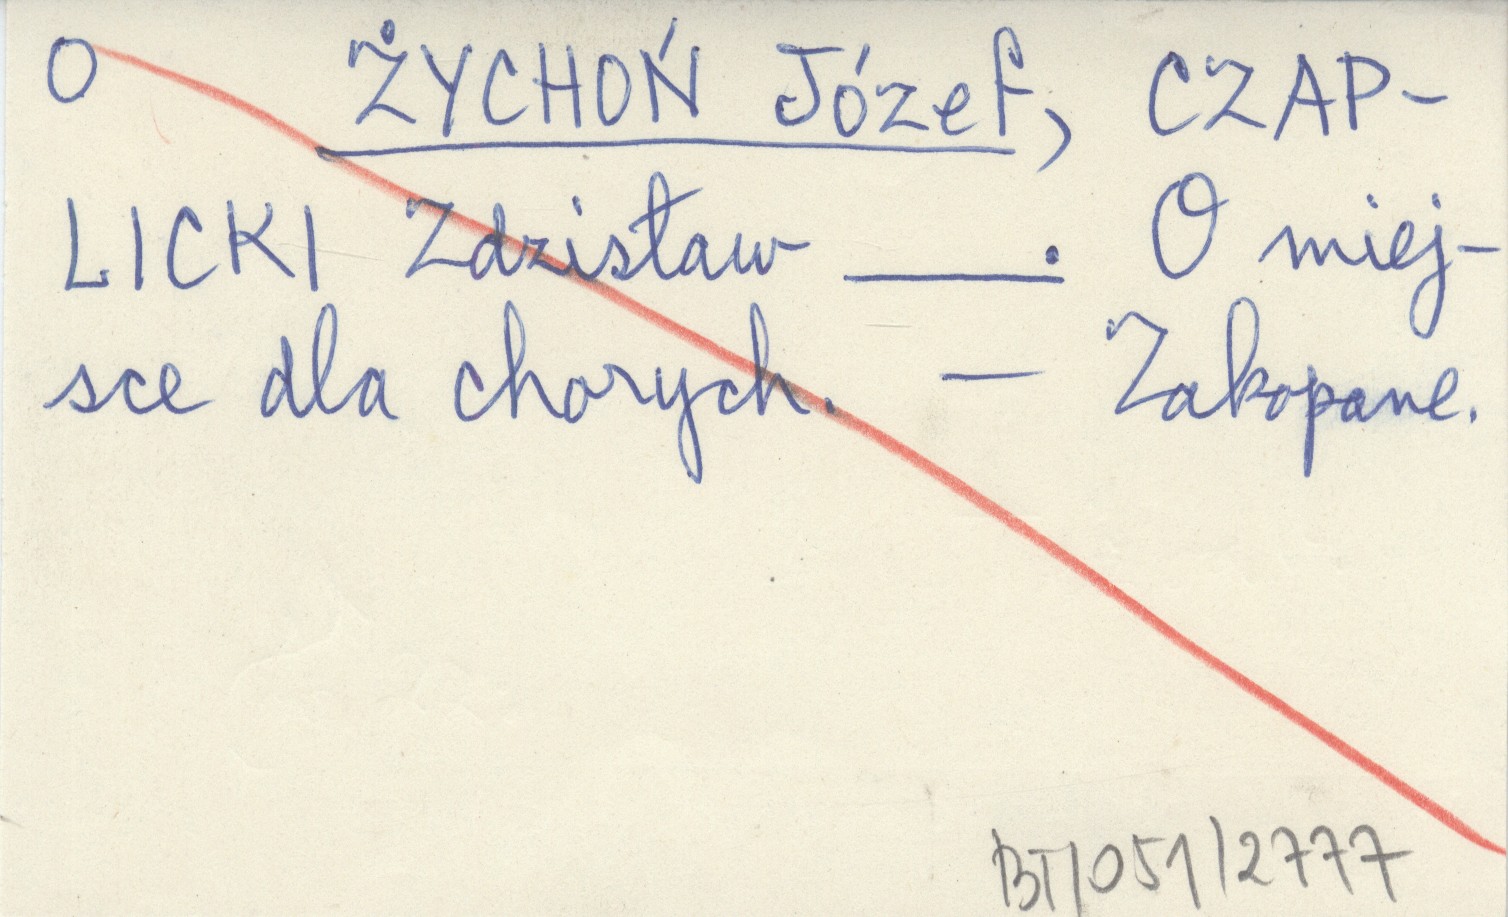 O ŻYCHOŃ Józef, CZAP-
LICKI Zdzisław ___. O miej-
sce dla chorych. — Zakopane.
BT/051/2777